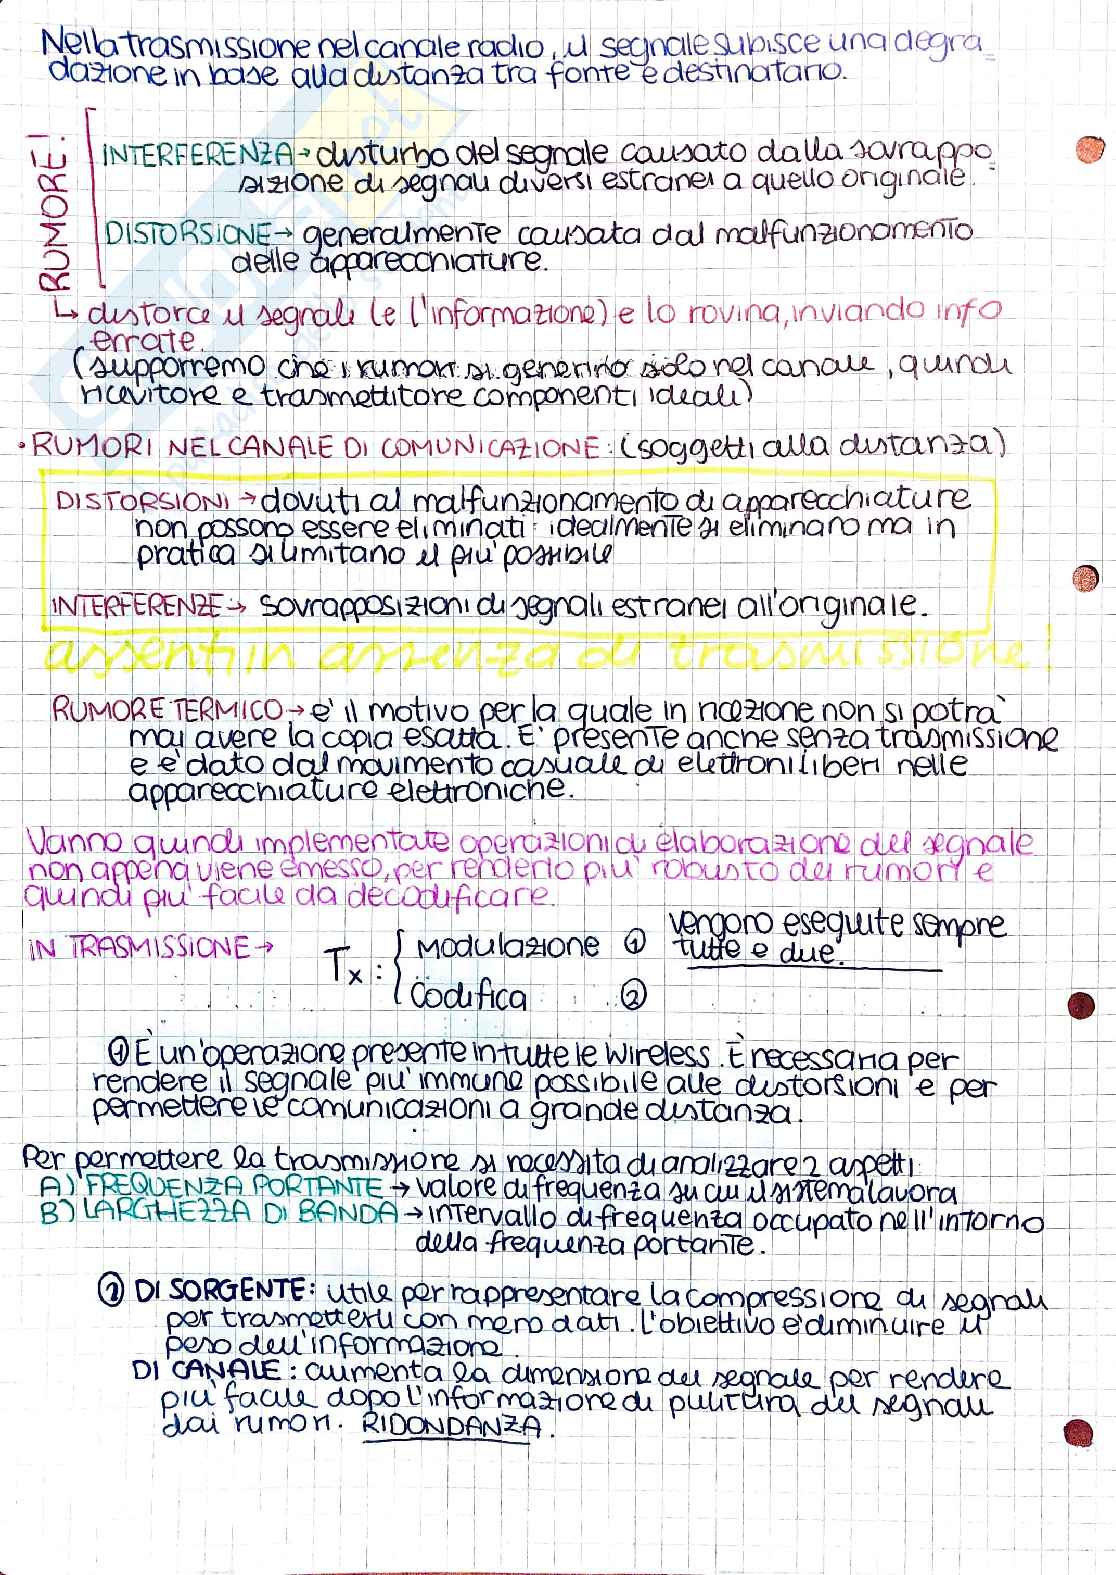 Nella trasmissione nel canale radio, il segnale subisce una degra_
dazione in base alla distanza tra fonte e destinatario.
RUMORE!
INTERFERENZA → disturbo del segnale causato dalla sovrappo_
sizione di segnali diversi estranei a quello originale.
DISTORSIONE → generalmente causata dal malfunzionamento
delle apparecchiature.
↳ distorce il segnale (e l'informazione) e lo rovina, inviando info
errate.
(supporremo che i rumori si generino solo nel canale, quindi
ricevitore e trasmettitore componenti ideali)
• RUMORI NEL CANALE DI COMUNICAZIONE: (soggetti alla distanza)
DISTORSIONI → dovuti al malfunzionamento di apparecchiature
non possono essere eliminati: idealmente si eliminano ma in
pratica si limitano il più possibile
INTERFERENZE → sovrapposizioni di segnali estranei all'originale.
assenti in assenza di trasmissione!
RUMORE TERMICO → è il motivo per la quale in ricezione non si potrà
mai avere la copia esatta. È presente anche senza trasmissione
e è dato dal movimento casuale di elettroni liberi nelle
apparecchiature elettroniche.
Vanno quindi implementate operazioni di elaborazione del segnale
non appena viene emesso, per renderlo più robusto dei rumori e
quindi più facile da decodificare.
IN TRASMISSIONE → Tx: { Modulazione ① vengono eseguite sempre
tutte e due.
Codifica ②
① È un'operazione presente in tutte le wireless. È necessaria per
rendere il segnale più immune possibile alle distorsioni e per
permettere le comunicazioni a grande distanza.
Per permettere la trasmissione si necessita di analizzare 2 aspetti
A) FREQUENZA PORTANTE → valore di frequenza su cui il sistema lavora
B) LARGHEZZA DI BANDA → intervallo di frequenza occupato nell'intorno
della frequenza portante.
② DI SORGENTE: utile per rappresentare la compressione di segnali
per trasmetterli con meno dati. L'obiettivo è diminuire il
peso dell'informazione.
DI CANALE: aumenta la dimensione del segnale per rendere
più facile dopo l'informazione di pulitura dei segnali
dai rumori. RIDONDANZA.